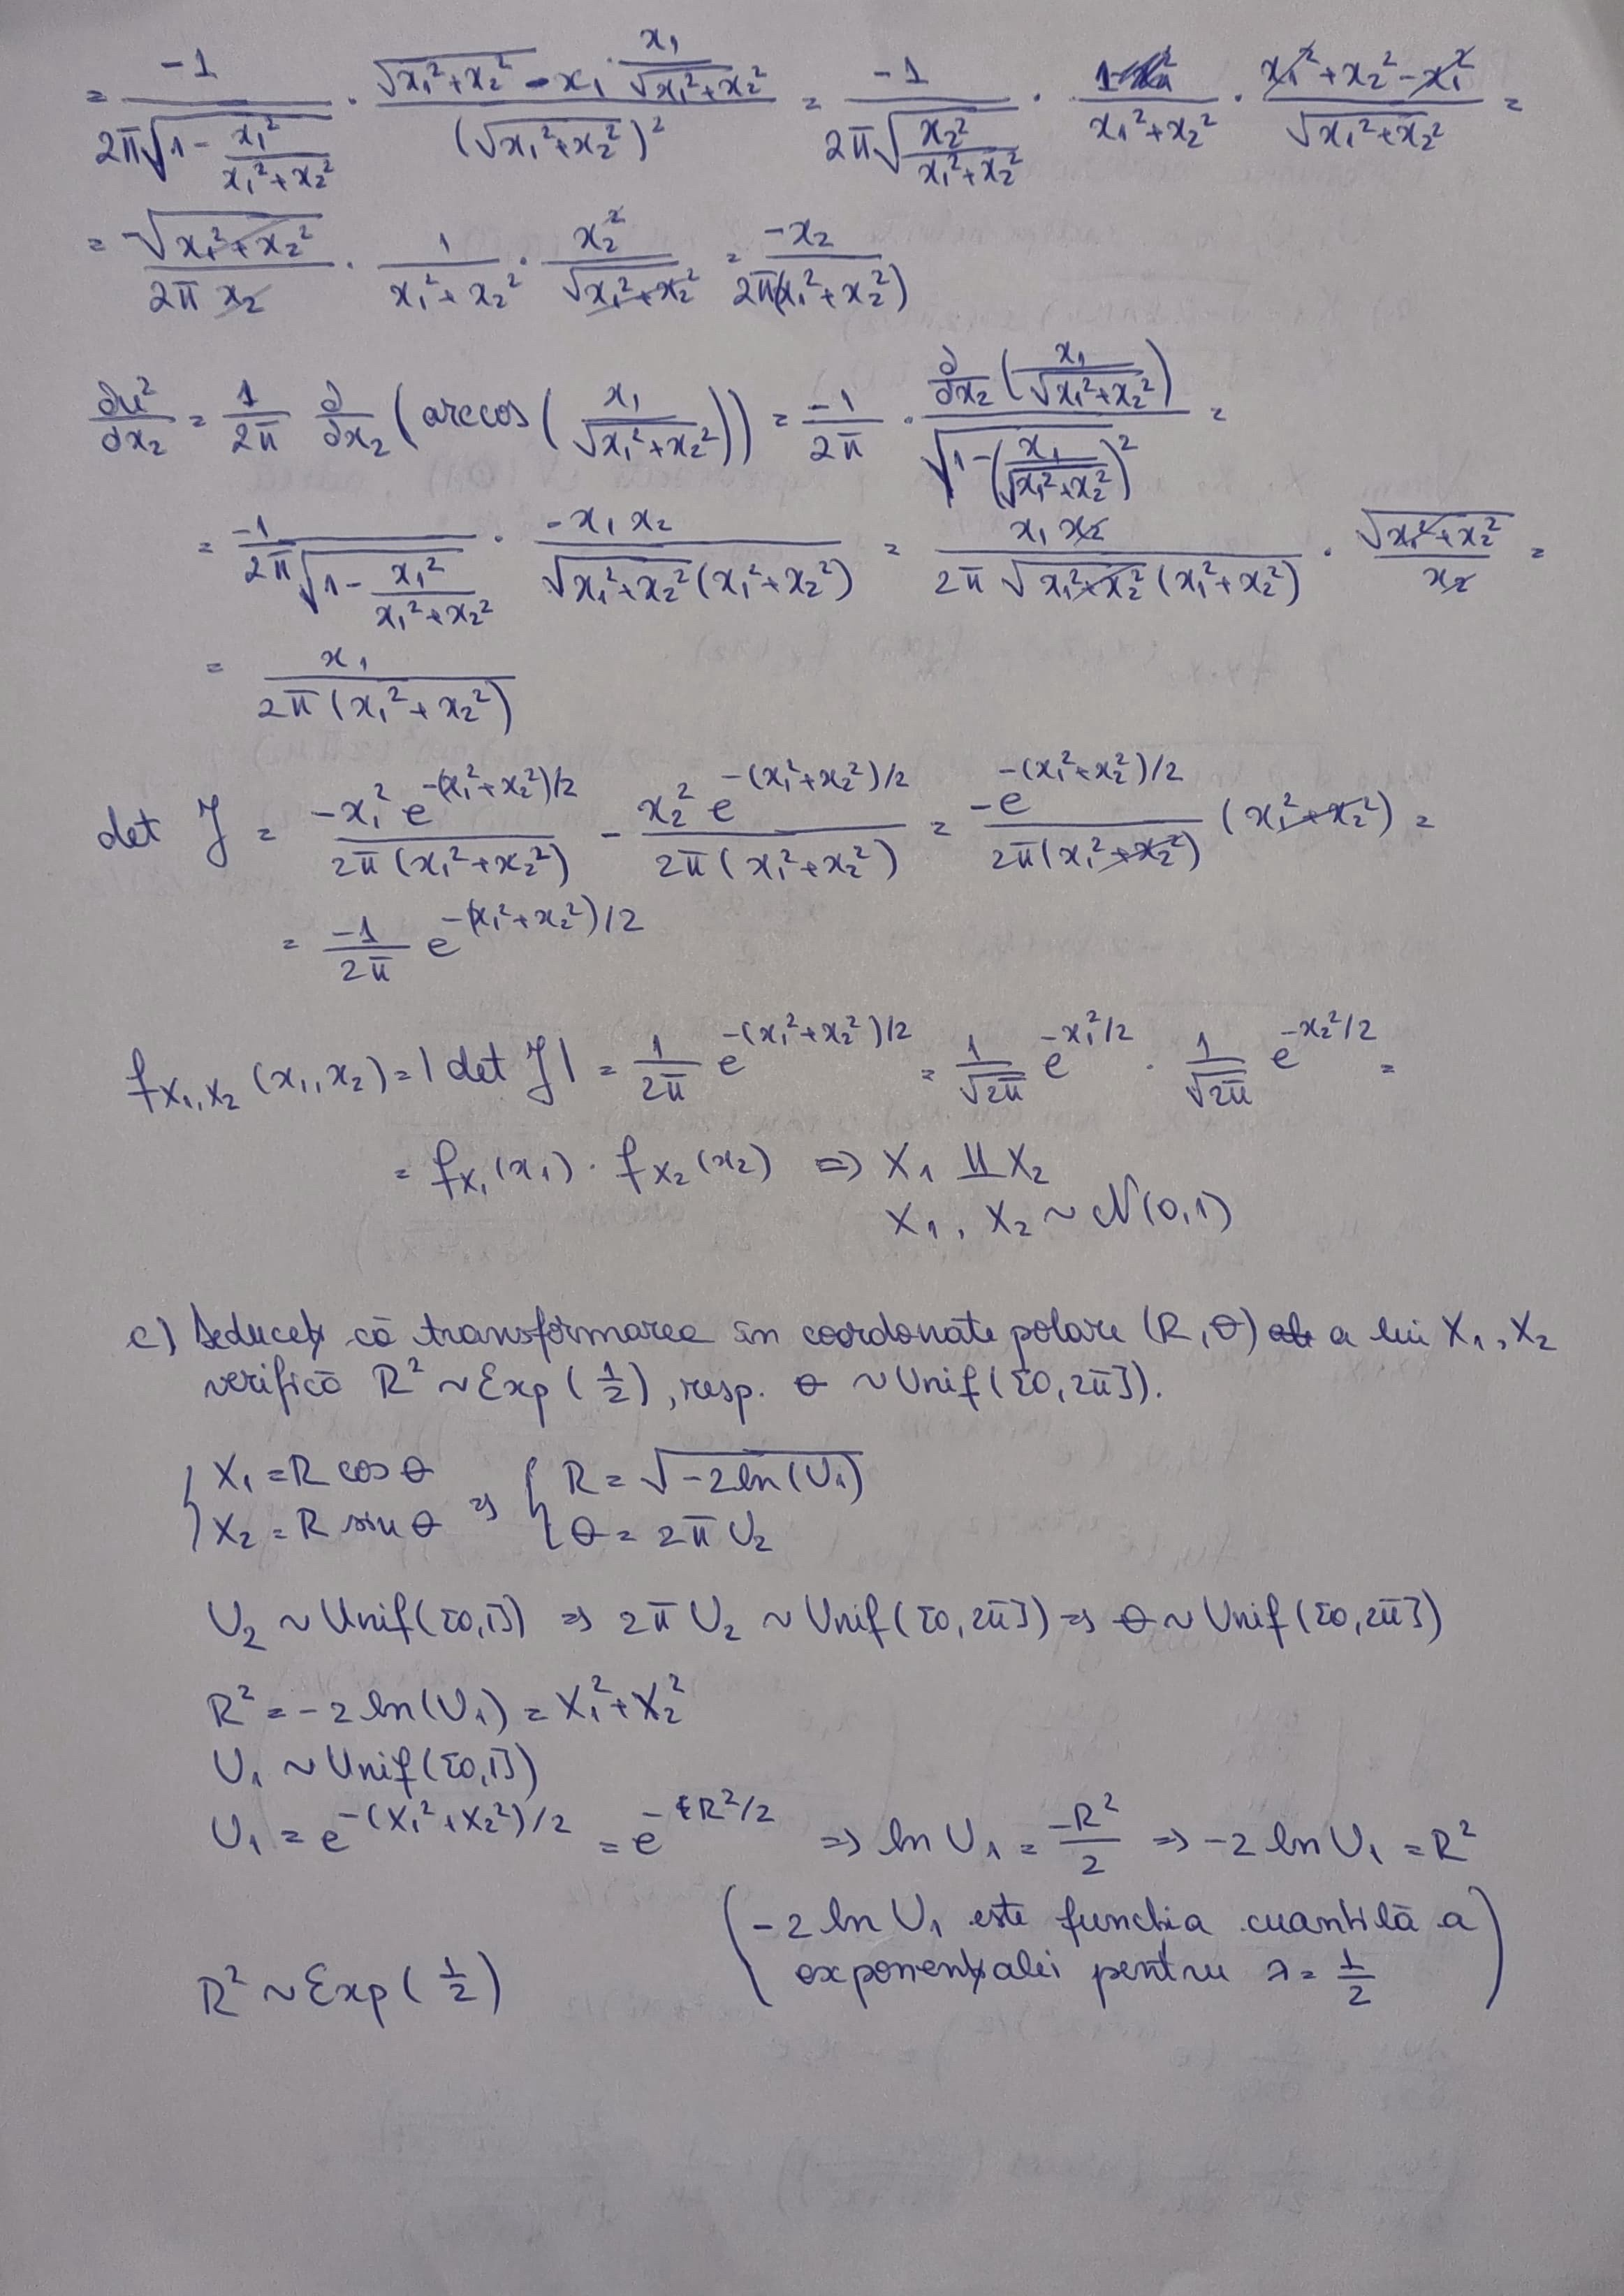 = -1 / (2π√(1 - x₁²/(x₁²+x₂²))) · (√(x₁²+x₂²) - x₁ · x₁/√(x₁²+x₂²)) / (√(x₁²+x₂²))² = -1 / (2π√(x₂²/(x₁²+x₂²))) · 1/(x₁²+x₂²) · (x₁²+x₂²-x₁²)/√(x₁²+x₂²) =
= -√(x₁²+x₂²) / (2π x₂) · 1/(x₁²+x₂²) · x₂²/√(x₁²+x₂²) = -x₂ / (2π(x₁²+x₂²))
∂u²/∂x₂ = 1/2π ∂/∂x₂ (arccos(x₁/√(x₁²+x₂²))) = -1/2π · ∂/∂x₂(x₁/√(x₁²+x₂²)) / √(1-(x₁/√(x₁²+x₂²))²) =
= -1 / (2π√(1 - x₁²/(x₁²+x₂²))) · -x₁x₂ / (√(x₁²+x₂²)(x₁²+x₂²)) = x₁x₂ / (2π√(x₁²+x₂²)(x₁²+x₂²)) · √(x₁²+x₂²)/x₂ =
= x₁ / (2π(x₁²+x₂²))
det J = -x₁² e^(-(x₁²+x₂²)/2) / (2π(x₁²+x₂²)) - x₂² e^(-(x₁²+x₂²)/2) / (2π(x₁²+x₂²)) = -e^(-(x₁²+x₂²)/2) / (2π(x₁²+x₂²)) (x₁²+x₂²) =
= -1/2π e^(-(x₁²+x₂²)/2)
f_X₁,X₂ (x₁,x₂) = |det J| = 1/2π e^(-(x₁²+x₂²)/2) = 1/√2π e^(-x₁²/2) · 1/√2π e^(-x₂²/2) =
= f_X₁(x₁) · f_X₂(x₂) ⇒ X₁ ⫫ X₂
X₁, X₂ ~ N(0,1)
c) Deduceți că transformarea în coordonate polare (R, θ) a lui X₁, X₂
verifică R² ~ Exp(1/2), resp. θ ~ Unif([0,2π]).
{ X₁ = R cos θ ⇒ { R = √(-2ln(U₁))
X₂ = R sin θ θ = 2π U₂
U₂ ~ Unif([0,1]) ⇒ 2π U₂ ~ Unif([0,2π]) ⇒ θ ~ Unif([0,2π])
R² = -2 ln(U₁) = X₁²+X₂²
U₁ ~ Unif([0,1])
U₁ = e^(-(X₁²+X₂²)/2) = e^(-R²/2) ⇒ ln U₁ = -R²/2 ⇒ -2 ln U₁ = R²
(-2 ln U₁ este funcția cuantilă a
R² ~ Exp(1/2) exponențialei pentru λ = 1/2)